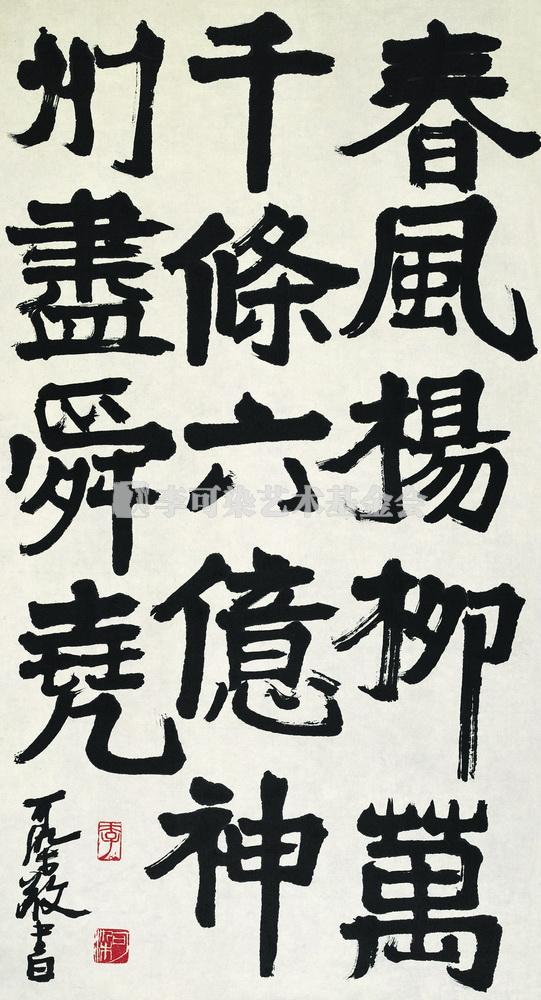 春風楊柳萬
千條六億神
州盡舜堯
可染敬書
李可染艺术基金会